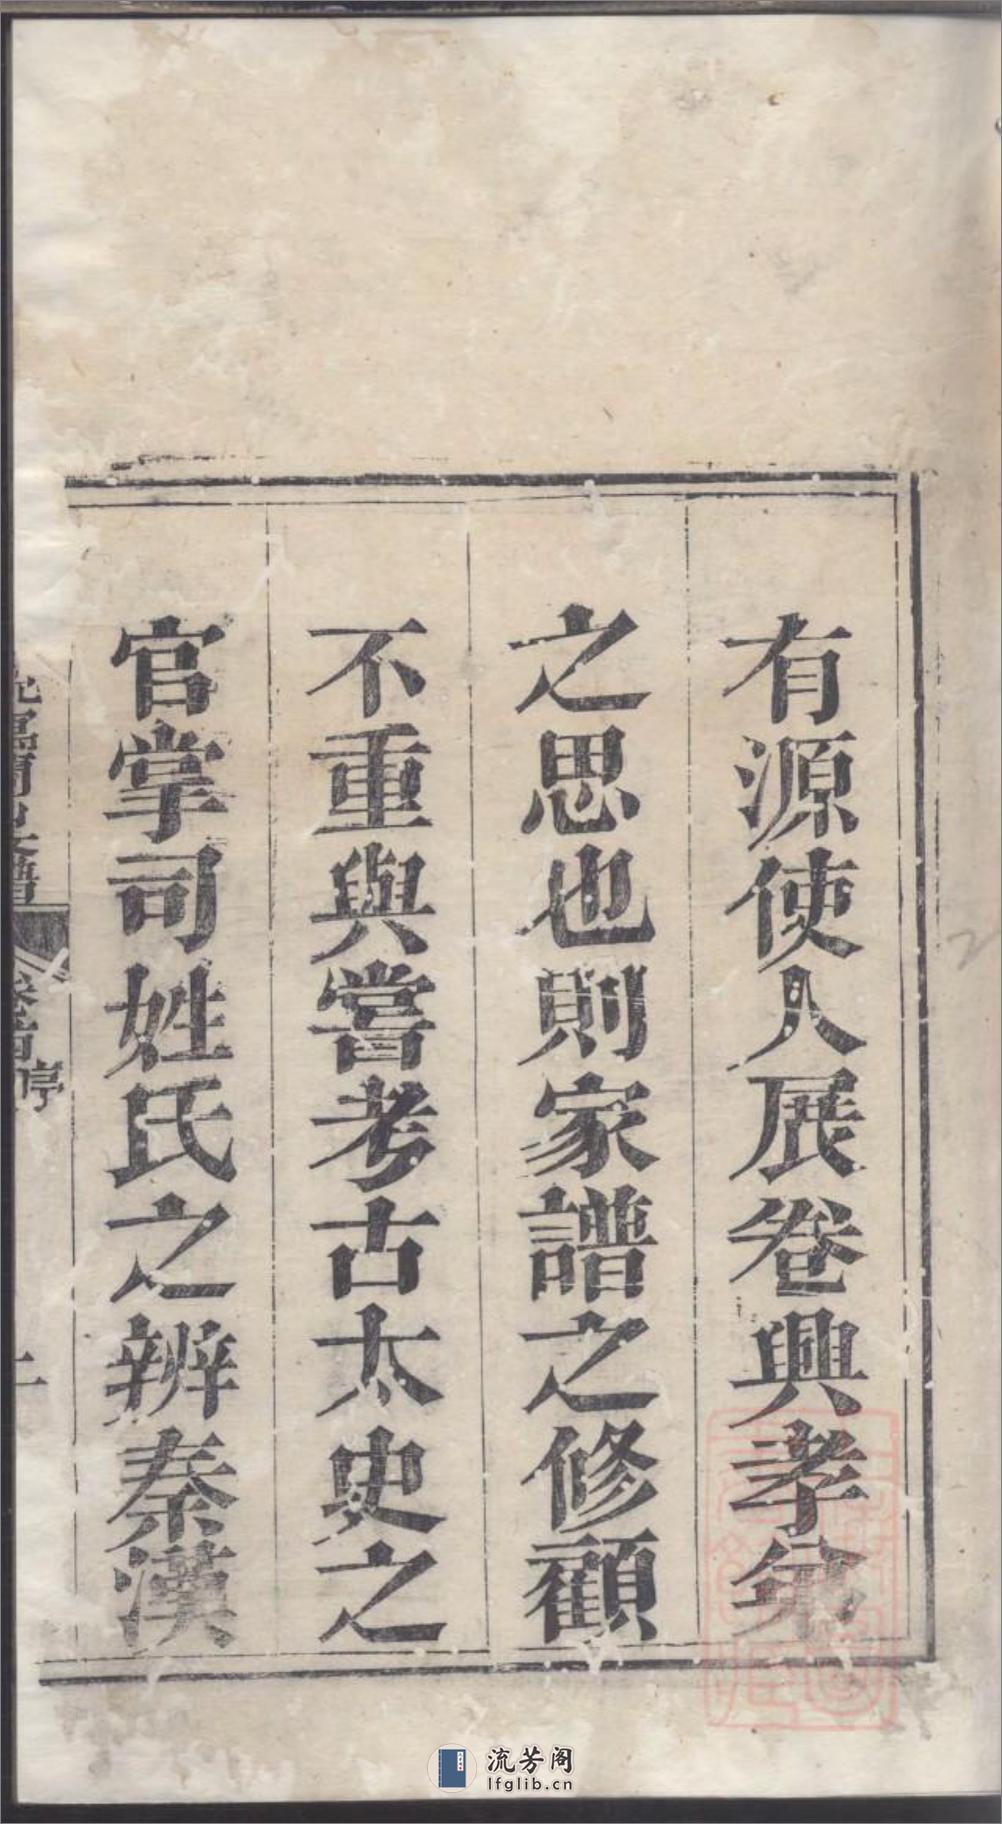 有源使人展卷興孝弟
之思也則家譜之修顧
不重與嘗考古太史之
官掌司姓氏之辨秦漢
譜 卷首 序
流芳阁
lfglib.cn